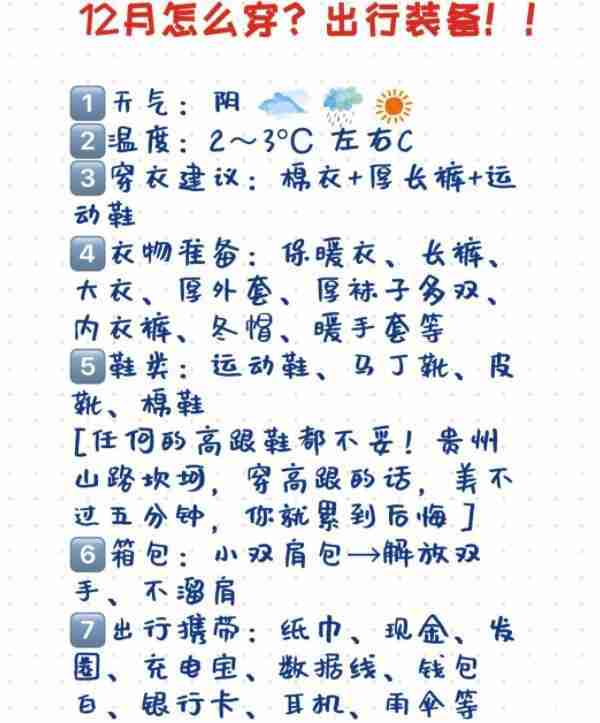 12月怎么穿？出行装备！！
1 天气：阴
2 温度：2～3°C 左右C
3 穿衣建议：棉衣+厚长裤+运
动鞋
4 衣物准备：保暖衣、长裤、
大衣、厚外套、厚袜子多双、
内衣裤、冬帽、暖手套等
5 鞋类：运动鞋、马丁靴、皮
靴、棉鞋
[任何的高跟鞋都不妥！贵州
山路坎坷，穿高跟的话，美不
过五分钟，你就累到后悔]
6 箱包：小双肩包→解放双
手、不溜肩
7 出行携带：纸巾、现金、发
圈、充电宝、数据线、钱包
百、银行卡、耳机、雨伞等